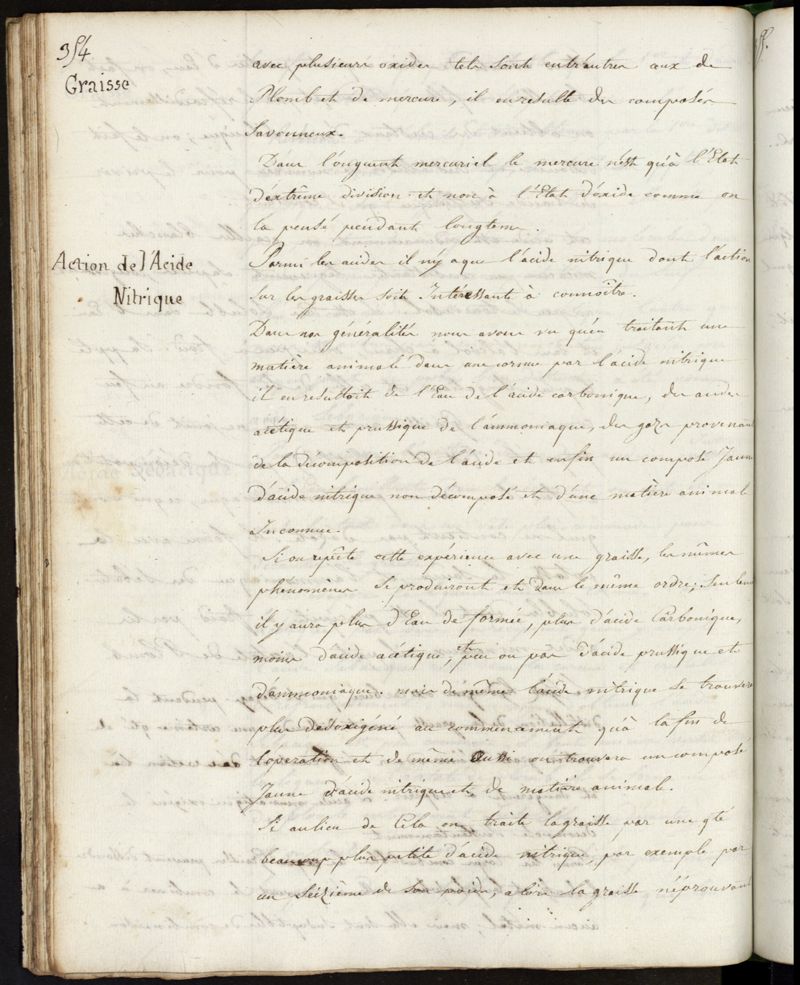 354
Graisse
avec plusieurs oxides tels sont entr'autres ceux de
Plomb et de mercure, il en resulte des composés
Savonneux.
Dans l'onguent mercuriel le mercure n'est qu'à l'Etat
d'extrême division et non à l'Etat d'oxide comme on
la pensé pendant longtems.
Action de l'Acide
Nitrique
Parmi les acides il n'y a que l'acide nitrique dont l'action
sur les graisses soit Intéressant à connoître.
Dans nos généralités nous avons vu qu'en traitant une
matière animale dans une cornue par l'acide nitrique
il en resultoit de l'Eau de l'acide carbonique, des acides
acétique et prussique de l'ammoniaque, des gazs provenant
de la décomposition de l'acide et enfin un composé Jaune
d'acide nitrique non décomposé et d'une matière animale
Inconnue.
Si on repète cette expérience avec une graisse, les mêmes
phénomènes se produiront et dans le même ordre; Seulem
il y aura plus d'Eau de formée, plus d'acide Carbonique,
moins d'acide acétique, et peu ou pas d'acide prussique et
d'ammoniaque. mais de même l'acide nitrique se trouvera
plus désoxigéné au commencement qu'à la fin de
l'opération et de même aussi on trouvera un composé
Jaune d'acide nitrique et de matière animale.
Si au lieu de Cela on traite la graisse par une qté
beaucoup plus petite d'acide nitrique, par exemple par
un Seizième de son poids, alors la graisse n'éprouvant